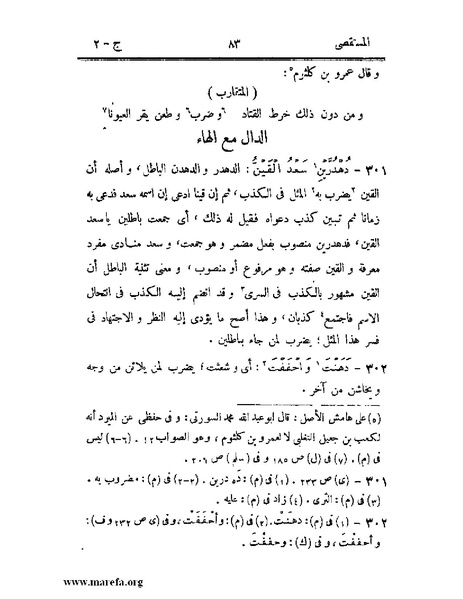 المستقصى ٨٣ ج - ٢
و قال عمرو بن كلثوم°:
( المتقارب )
و من دون ذلك خرط القتاد ٦و ضرب٦ و طعن يقر العيونا٧
الدال مع الهاء
٣٠١ - دُهْدُرَّيْنِ١ سَعْدُ الْقَيْنُ: الدهدر و الدهدن الباطل، و أصله أن
القين ٢يضرب به٢ المثل فى الكذب، ثم إن قينا ادعى إن اسمه سعد فدعى به
زمانا ثم تبين كذب دعواه فقيل له ذلك، أى جمعت باطلين ياسعد
القين، فدهدرين منصوب بفعل مضمر و هو جمعت، و سعد منادى مفرد
معرفة و القين صفته و هو مرفوع أو منصوب، و معنى تثنية الباطل أن
القين مشهور بالكذب فى السرى٣ و قد انضم إليه الكذب فى انتحال
الاسم فاجتمع٤ كذبان، و هذا أصح ما يؤدى إليه النظر و الاجتهاد فى
فسر هذا المثل؛ يضرب لمن جاء بباطلين.
٣٠٢ - دَهَنْتَ١ وَ أَحْفَفْتَ٢: أى و شعثت؛ يضرب لمن يلائن من وجه
و يخاشن من آخر.
(٥) على هامش الأصل: قال ابو عبد الله محمد السورتى: و فى حفظى عن المبرد أنه
لكعب بن جعيل التغلبى لا لعمرو بن كلثوم، و هو الصواب ١٢. (٦-٦) ليس
فى (م). (٧) فى (ل) ص ١٨٥ و فى (سلم) ص ٢٠٦.
٣٠١ - (ى) ص ٢٣٣. (١) فى (م): ده درين. (٢-٢) فى (م): مضروب به.
(٣) فى (م): الثرى. (٤) زاد فى (م): عليه.
٣٠٢ - (١) فى (م): دهنت. (٢) فى (م): و أحففت، و فى (ى ص ٢٣٢ و ف):
و أحففت، و فى (ك): و حففت.
www.marefa.org